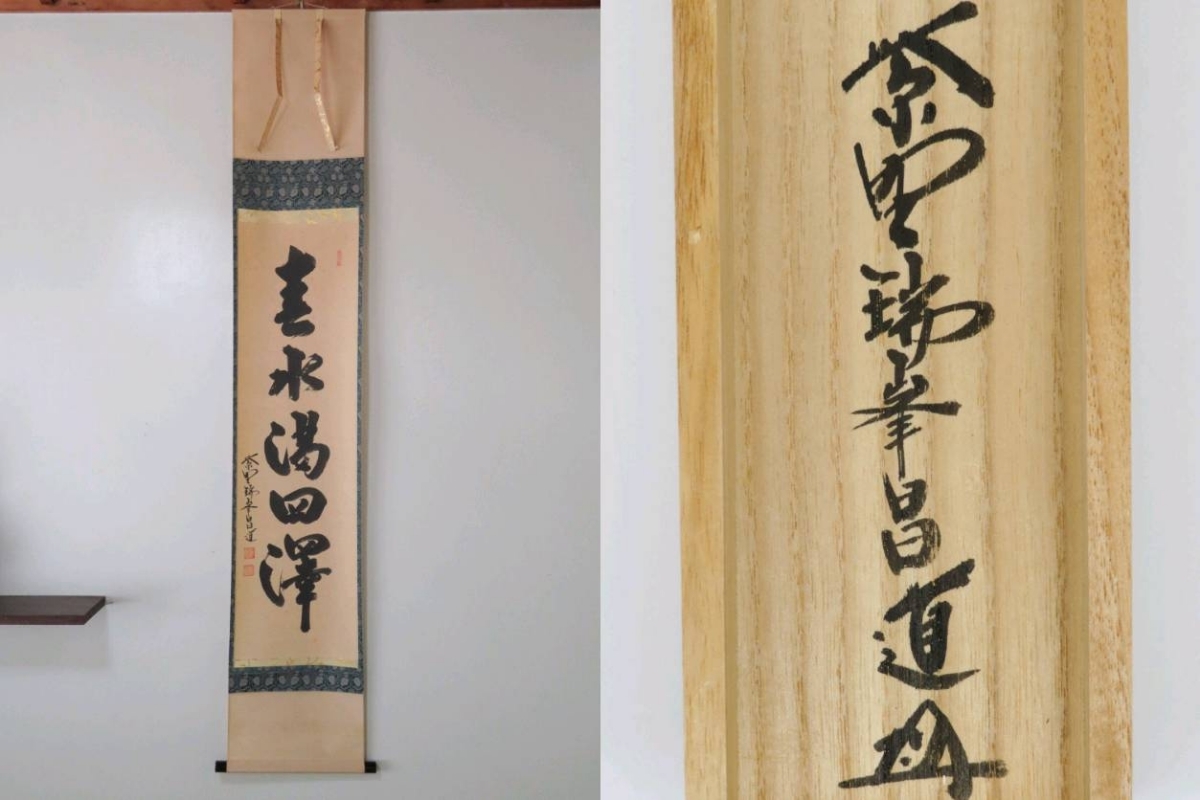 春水満四澤
紫野瑞峯昌道
紫野瑞峯昌道